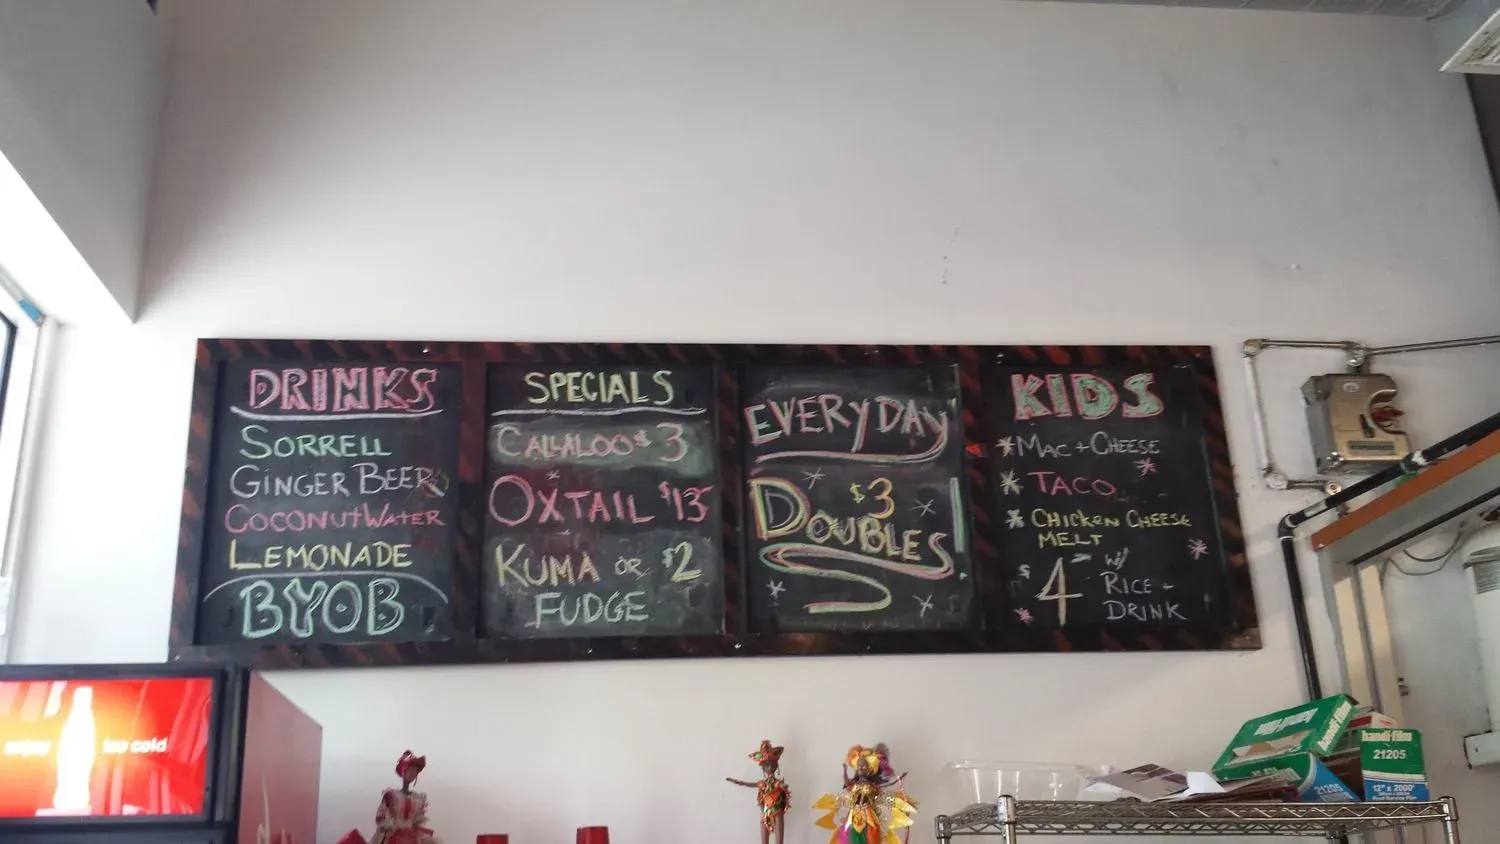 DRINKS
SORRELL
GINGER BEER
COCONUT WATER
LEMONADE
BYOB
SPECIALS
CALLALOO $3
OXTAIL $13
KUMA OR $2
FUDGE
EVERYDAY
$3
DOUBLES
KIDS
*MAC + CHEESE
* TACO
* CHICKEN CHEESE
MELT
$4 W/
RICE +
DRINK
enjoy ice cold
handi-film
handi-film
21205
21205
12" x 2000'